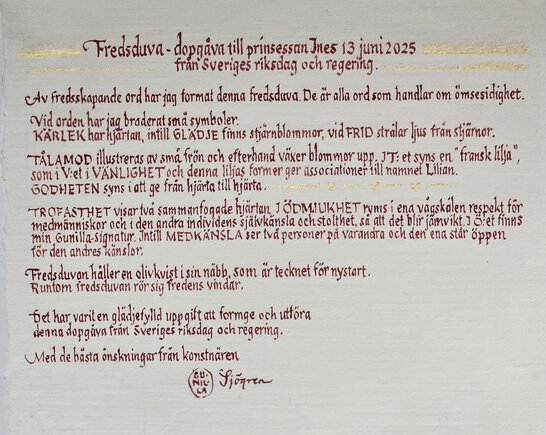 Fredsduva - dopgåva till prinsessan Ines 13 juni 2025
från Sveriges riksdag och regering.
Av fredsskapande ord har jag format denna fredsduva. De är alla ord som handlar om ömsesidighet.
Vid orden har jag broderat små symboler.
KÄRLEK har hjärtan, intill GLÄDJE finns stjärnblommor, vid FRID strålar ljus från stjärnor.
TÅLAMOD illustreras av små frön och efterhand växer blommor upp. I T:et syns en "fransk lilja",
som i V:et i VÄNLIGHET och denna liljas former ger associationer till namnet Lilian.
GODHETEN syns i att ge från hjärta till hjärta.
TROFASTHET visar två sammanfogade hjärtan. I ÖDMJUKHET ryms i ena vågskålen respekt för
medmänniskor och i den andra individens självkänsla och stolthet, så att det blir jämvikt. I Ö:et finns
min Gunilla-signatur. Intill MEDKÄNSLA ser två personer på varandra och den ena står öppen
för den andres känslor.
Fredsduvan håller en olivkvist i sin näbb, som är tecknet för nystart.
Runtom fredsduvan rör sig fredens vindar.
Det har varit en glädjefylld uppgift att formge och utföra
denna dopgåva från Sveriges riksdag och regering.
Med de bästa önskningar från konstnären
GU-
NIL-
LA
Sjögren